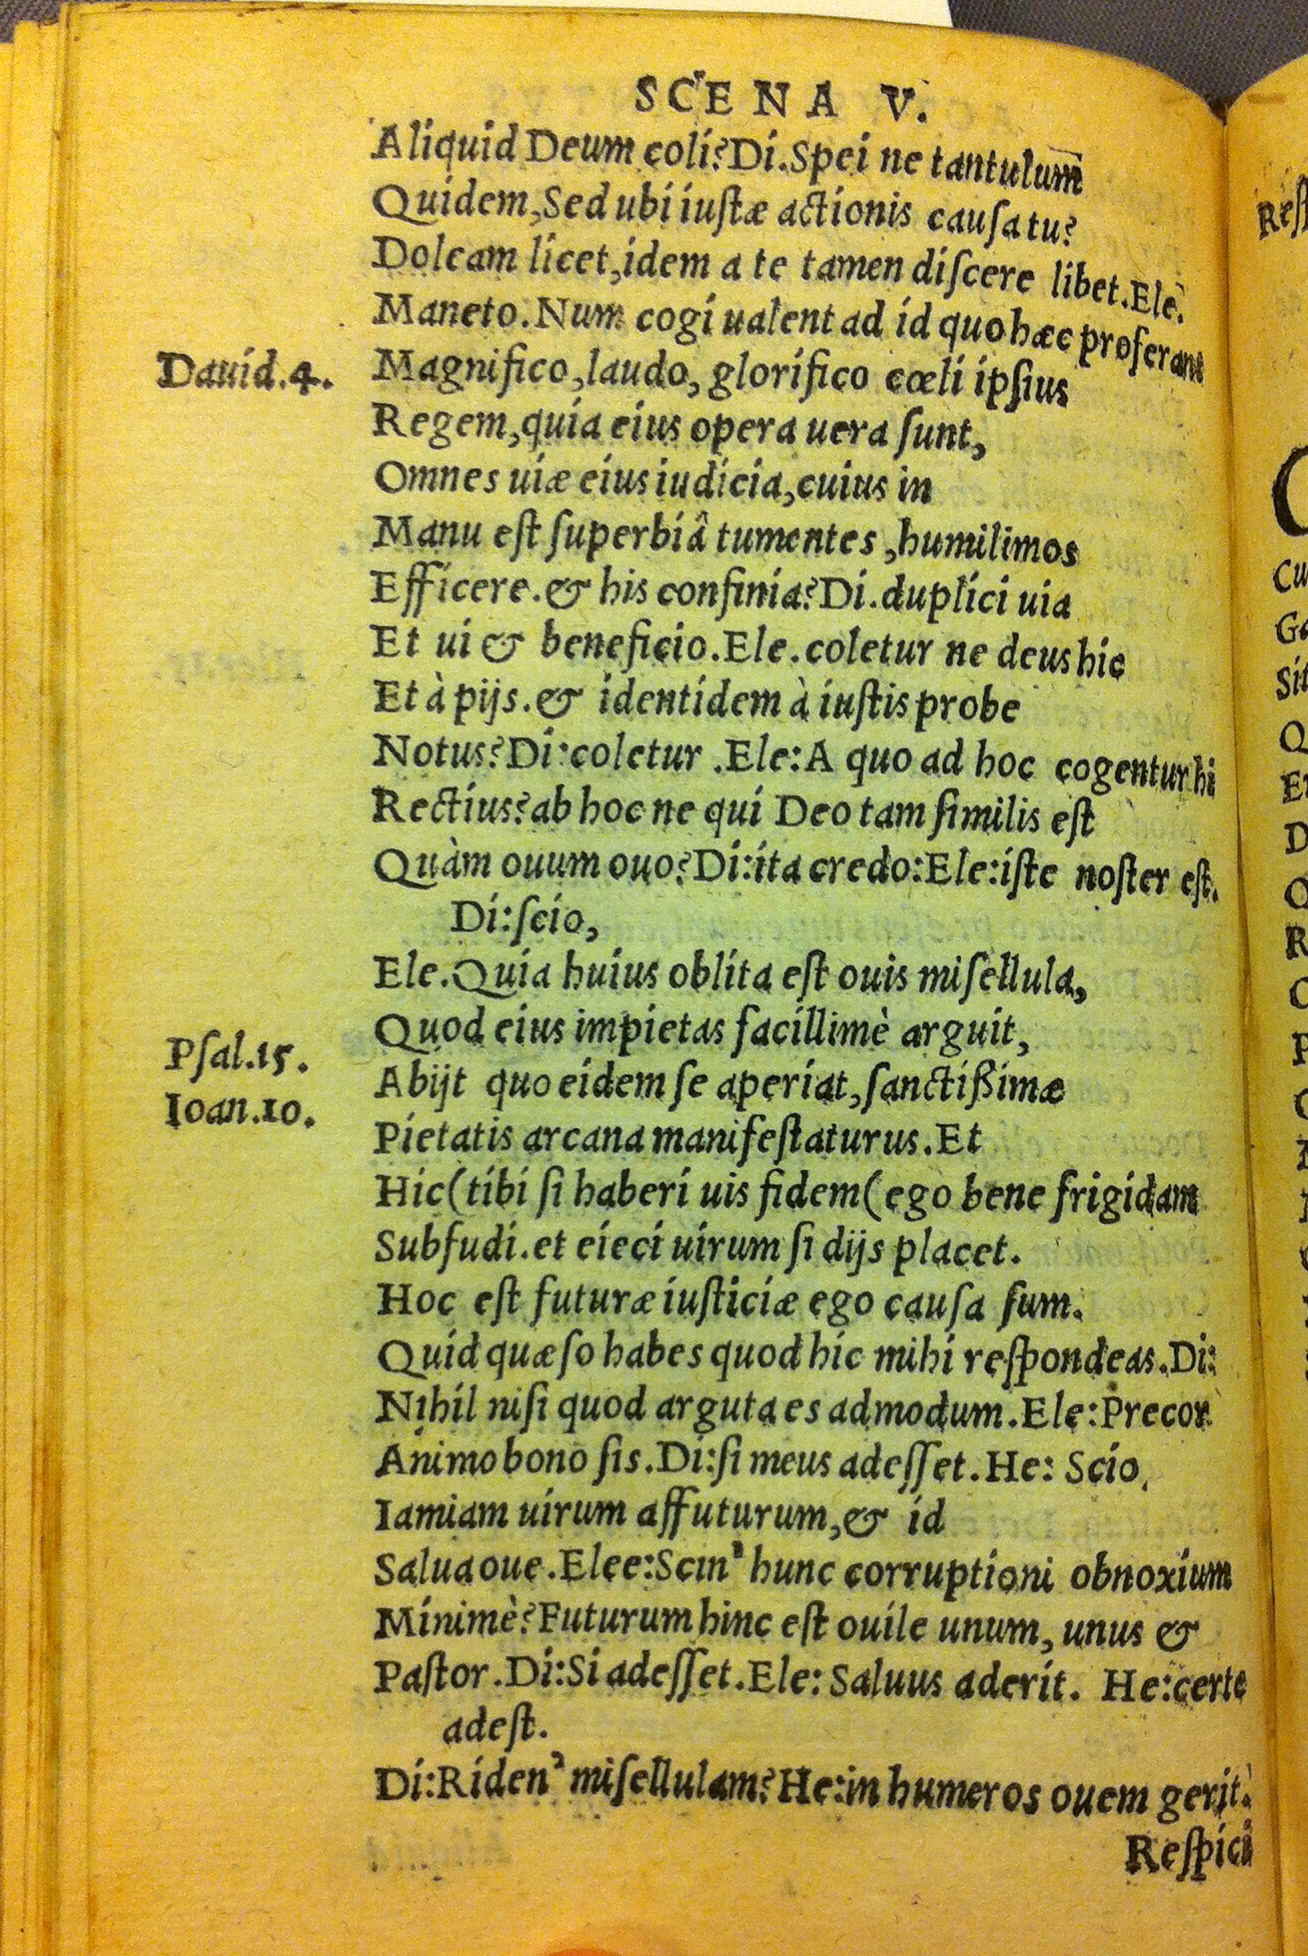 SCENA V.
Aliquid Deum coli?Di.Spei ne tantulum̄
Quidem,Sed ubi iustæ actionis causa tu?
Doleam licet,idem a te tamen discere libet.Ele.
Maneto.Num cogi ualent ad id quo hæc proferant
Dauid.4. Magnifico,laudo, glorifico cœli ipsius
Regem,quia eius opera uera sunt,
Omnes uiæ eius iudicia,cuius in
Manu est superbiâ tumentes ,humilimos
Efficere.& his confinia?Di.duplici uia
Et ui & beneficio.Ele.coletur ne deus hic
Et à pijs.& identidem à iustis probe
Notus?Di:coletur .Ele:A quo ad hoc cogentur hi
Rectius?ab hoc ne qui Deo tam similis est
Quàm ouum ouo?Di:ita credo:Ele:iste noster est.
Di:scio,
Ele.Quia huius oblita est ouis misellula,
Quod eius impietas facillimè arguit,
Psal.15.
Abijt quo eidem se aperiat,sanctißimæ
Ioan.10.
Pietatis arcana manifestaturus.Et
Hic(tibi si haberi uis fidem(ego bene frigidam
Subfudi.et eieci uirum si dijs placet.
Hoc est futuræ iusticiæ ego causa sum.
Quid quæso habes quod hic mihi respondeas.Di:
Nihil nisi quod arguta es admodum.Ele:Precor
Animo bono sis.Di:si meus adesset.He: Scio,
Iamiam uirum affuturum,& id
Salua oue.Elee:Scin' hunc corruptioni obnoxium
Minimè?Futurum hinc est ouile unum, unus &
Pastor.Di:Si adesset.Ele: Saluus aderit. He:certe
adest.
Di:Riden' misellulam?He:in humeros ouem gerit.
Respici
Rest
Cu
Sit